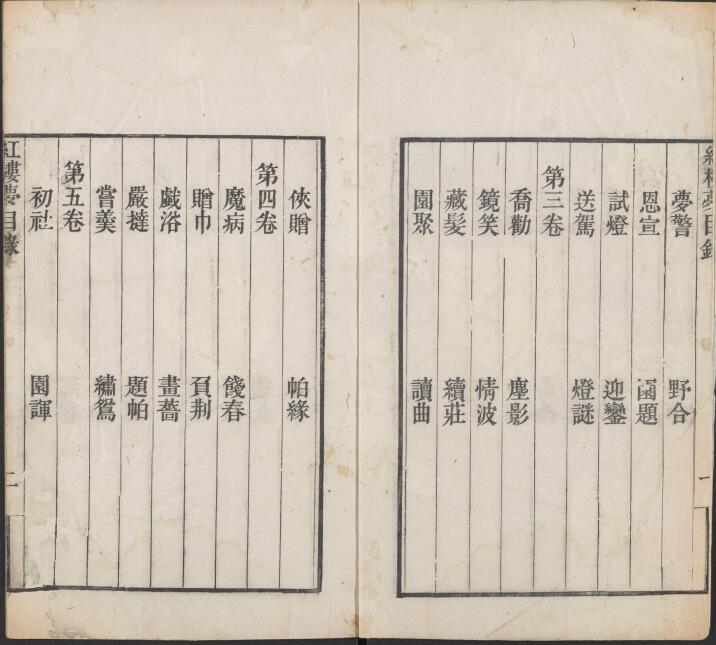 紅樓夢目錄 一
夢警 野合
恩宣 園題
試燈 迎鑾
送駕 燈謎
第三卷
喬勸 塵影
鏡笑 情波
藏髮 續莊
園聚 讀曲
俠贈 帕緣
第四卷
魔病 餞春
贈巾 負荆
戯浴 畫薔
嚴撻 題帕
嘗羹 繡鴛
第五卷
初社 園諢
紅樓夢目錄 二